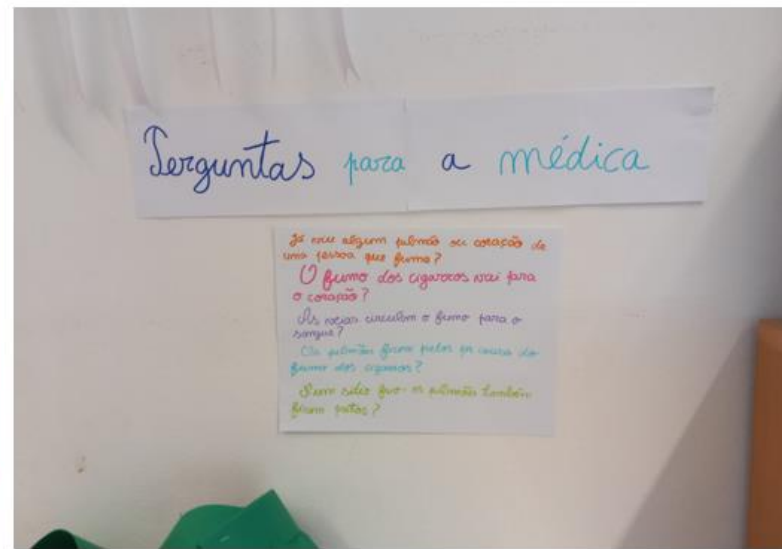 Perguntas para a médica
Já viu algum pulmão ou coração de
uma pessoa que fuma?
O fumo dos cigarros vai para
o coração?
As veias circulam o fumo para o
sangue?
Os pulmões ficam pretos por causa do
fumo dos cigarros?
Num sitio os pulmões também
ficam pretos?